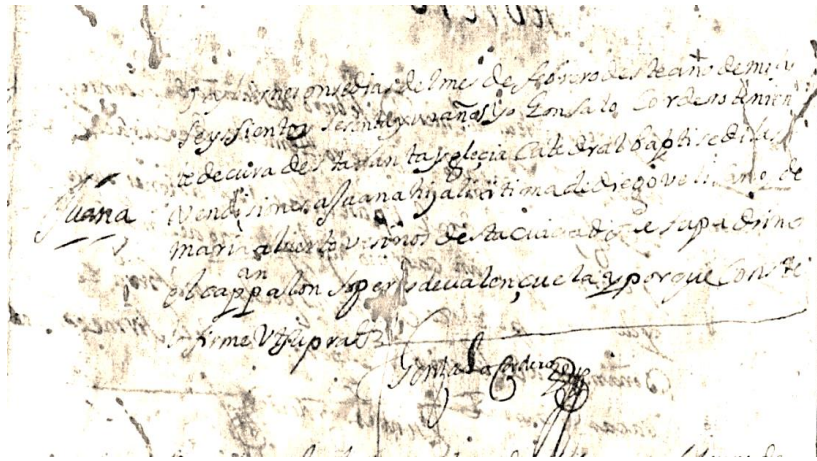 En viernes onse dias del mes de febrero deste año de mil y
seyssientos sesenta y un años yo Gonsalo Cordero tenien
te de cura desta santa yglecia Catedral baptise di las
Juana
vendisines a Juana hija lexitima de diego de
maria alberto vesinos desta ciudad fue su padrino
el cappan alonso peres de valençuela y porque Conste
lo firme Vt supra
Gonzalo Cordero